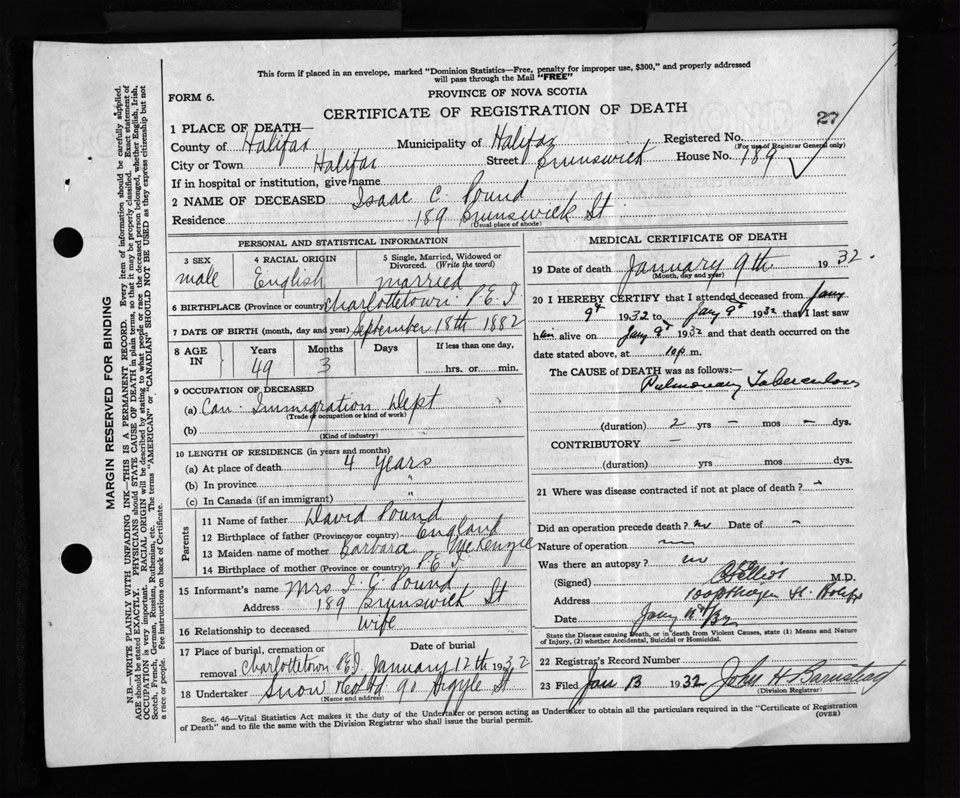 This form if placed in an envelope, marked "Dominion Statistics—Free, penalty for improper use, $300," and properly addressed
will pass through the Mail "FREE"
FORM 6.
PROVINCE OF NOVA SCOTIA
CERTIFICATE OF REGISTRATION OF DEATH
27
1 PLACE OF DEATH—
County of Halifax Municipality of Halifax Registered No.
(For use of Registrar General only)
City or Town Halifax Street Brunswick House No. 189
If in hospital or institution, give name
2 NAME OF DECEASED Isaac C. Pound
Residence 189 Brunswick St
(Usual place of abode)
PERSONAL AND STATISTICAL INFORMATION
3 SEX 4 RACIAL ORIGIN 5 Single, Married, Widowed or Divorced. (Write the word)
male English married
6 BIRTHPLACE (Province or country) Charlottetown P.E.I
7 DATE OF BIRTH (month, day and year) September 18th 1882
8 AGE IN Years Months Days If less than one day,
49 3 hrs. or min.
9 OCCUPATION OF DECEASED
(a) Can. Immigration Dept
(Trade or occupation or kind of work)
(b)
(Kind of industry)
10 LENGTH OF RESIDENCE (in years and months)
(a) At place of death 4 years
(b) In province "
(c) In Canada (if an immigrant) "
Parents
11 Name of father David Pound
12 Birthplace of father (Province or country) England
13 Maiden name of mother Barbara McKenzie
14 Birthplace of mother (Province or country) P.E.I
15 Informant's name Mrs I. C. Pound
Address 189 Brunswick St
16 Relationship to deceased wife
17 Place of burial, cremation or removal Charlottetown P.E.I. Date of burial January 12th 1932
18 Undertaker Snow & Co Ltd 90 Argyle St
(Name and address)
MEDICAL CERTIFICATE OF DEATH
19 Date of death January 9th 1932.
(Month, day and year)
20 I HEREBY CERTIFY that I attended deceased from Jany
9th 1932 to Jany 9th 1932 that I last saw
him alive on Jany 9th 1932 and that death occurred on
date stated above, at 10 p m.
The CAUSE of DEATH was as follows:—
Pulmonary Tuberculosis
(duration) 2 yrs – mos – dys.
CONTRIBUTORY –
(duration) yrs mos dys.
21 Where was disease contracted if not at place of death? -
Did an operation precede death? no Date of –
Nature of operation
Was there an autopsy? no
(Signed) M.D.
Address St. Halifax
Date Jany 11th/32
State the Disease causing Death, or in death from Violent Causes, state (1) Means and Nature
of Injury, (2) whether Accidental, Suicidal or Homicidal.
22 Registrar's Record Number
23 Filed Jan 13 1932 John H Barnstead
(Division Registrar)
Sec. 46—Vital Statistics Act makes it the duty of the Undertaker or person acting as Undertaker to obtain all the particulars required in the "Certificate of Registration
of Death" and to file the same with the Division Registrar who shall issue the burial permit.
(OVER)
MARGIN RESERVED FOR BINDING
N.B.—WRITE PLAINLY WITH UNFADING INK—THIS IS A PERMANENT RECORD. Every item of information should be carefully supplied.
AGE should be stated EXACTLY. PHYSICIANS should STATE CAUSE OF DEATH in plain terms, so that it may be properly classified. Exact statement of
OCCUPATION is very important. RACIAL ORIGIN will be described by stating to what people or race the deceased person belonged, whether English, Irish,
Scotch, French, German, Russian, Ruthenian, etc. The terms "AMERICAN" or "CANADIAN" SHOULD NOT BE USED as they express citizenship but not
a race or people. See instructions on back of Certificate.